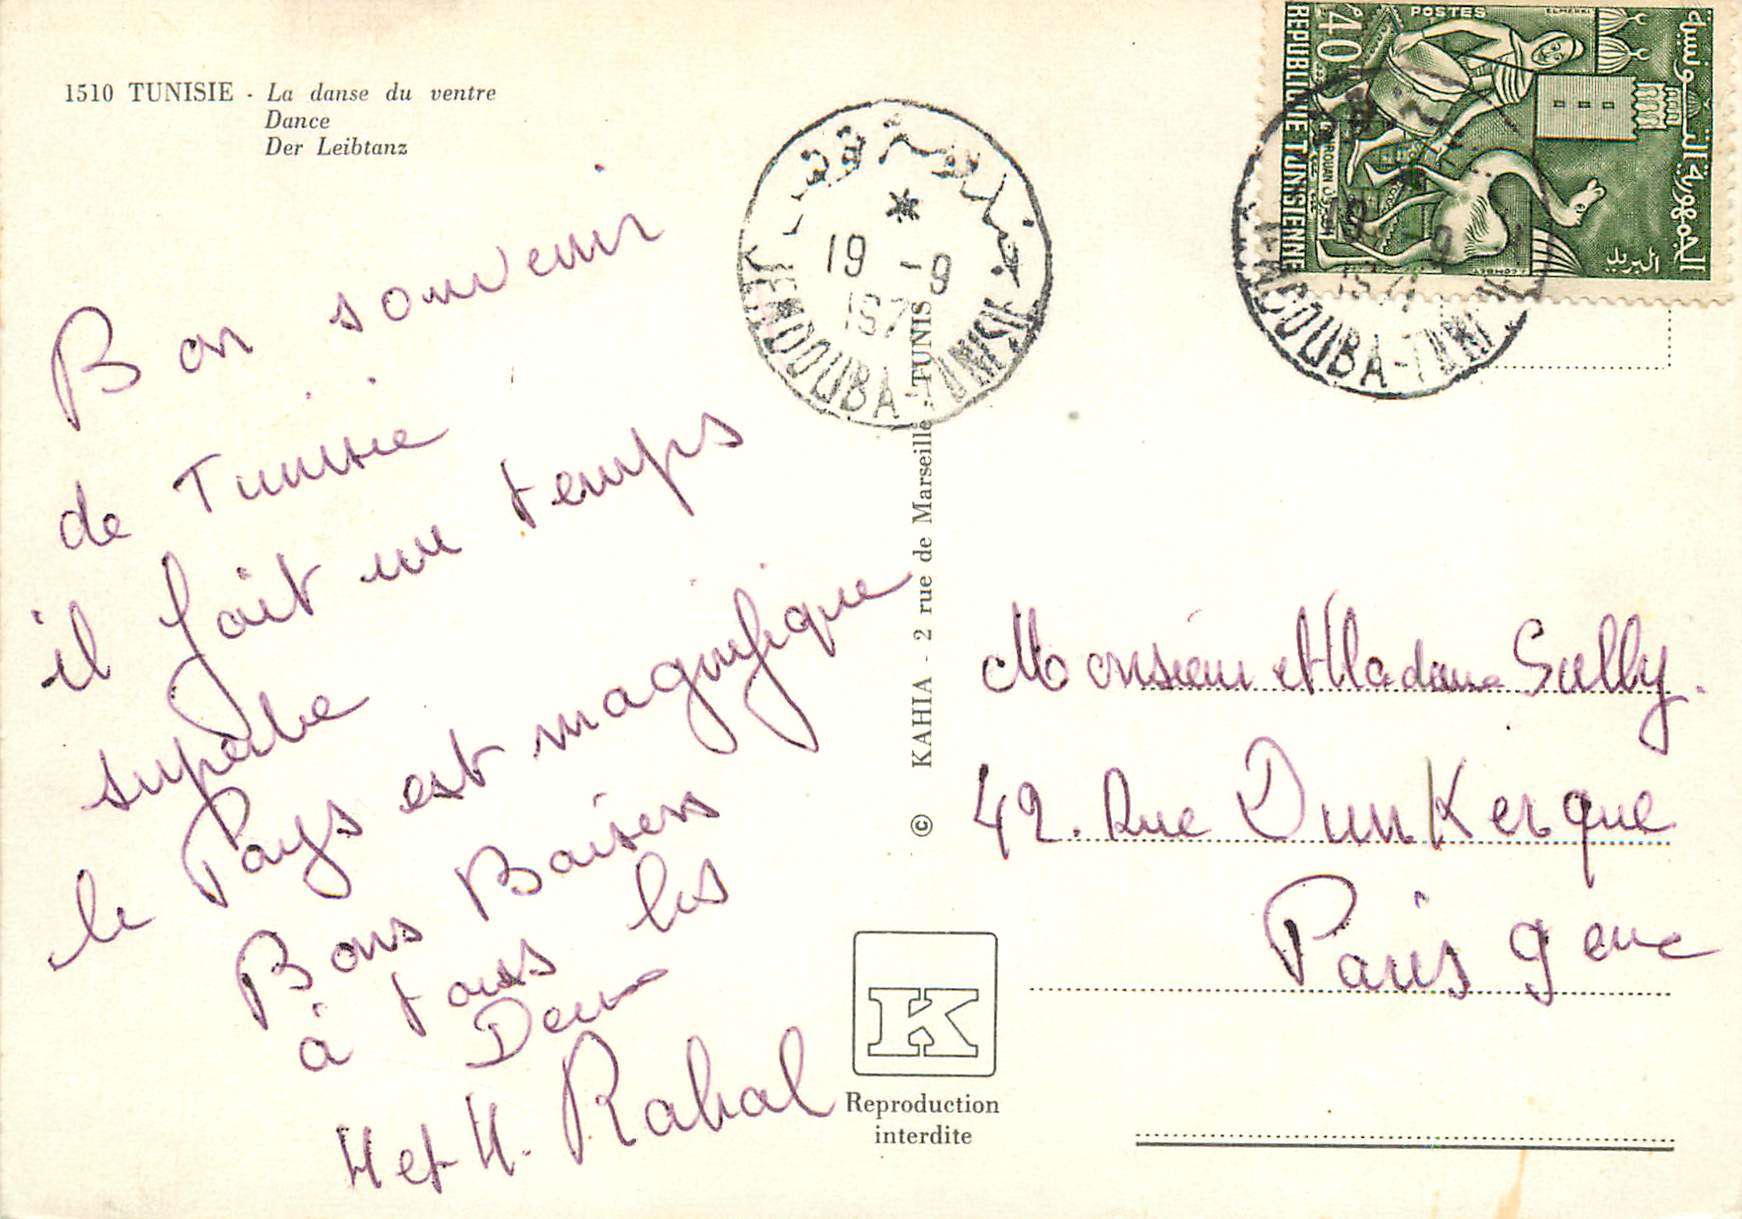 1510 TUNISIE - La danse du ventre
Dance
Der Leibtanz
Bon souvenir
de Tunisie
il fait un temps
superbe
le Pays est magnifique
Bons Baisers
à tous les
Deux
M et M. Rahal
© KAHIA - 2 rue de Marseille - TUNIS
K
Reproduction
interdite
19 -9
197
JENDOUBA-TUNISIE
POSTES
ELMEKKI
40
REPUBLIQUE TUNISIENNE
الجمهورية التونسية
البريد
COMBET
19 -9
1971
JENDOUBA-TUNISIE
Monsieur et Madame Sully.
42. Rue Dunkerque
Paris 9eme